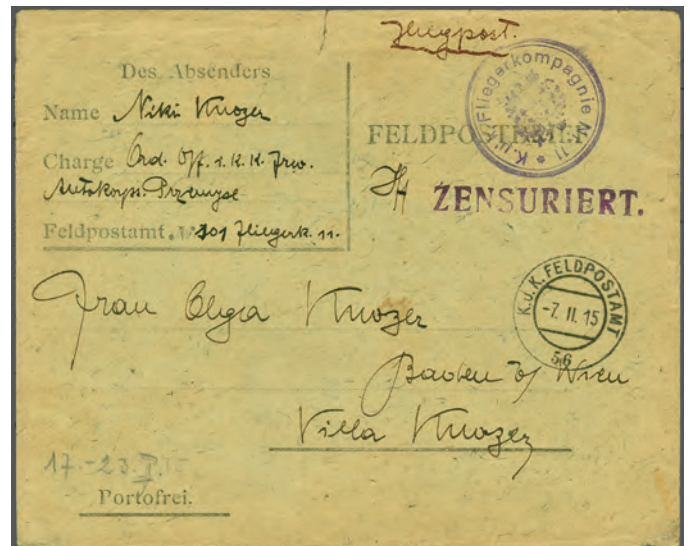 Fliegpost.
Des Absenders
Name Niki Knozer
Charge Ord. Off. K. K. Frw.
Autokorps. Przemysl
Feldpostamt 101 Fliegerk. 11.
K.u.K. Fliegerkompagnie Nr. 11
FELDPOSTBRIEF
ZENSURIERT.
K.u.K. FELDPOSTAMT
-7. II. 15
56
Frau Olga Knozer
Baden b/ Wien
Villa Knozer
17.-23. I.
Portofrei.